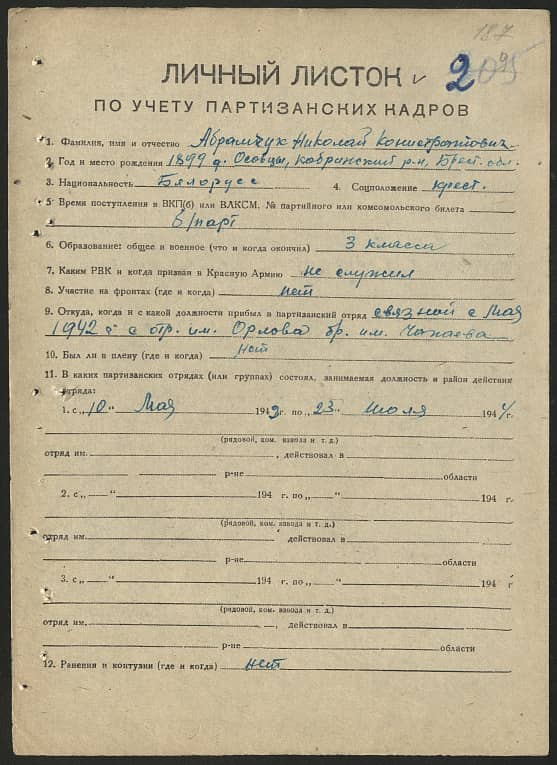 187
ЛИЧНЫЙ ЛИСТОК
2
ПО УЧЕТУ ПАРТИЗАНСКИХ КАДРОВ
1. Фамилия, имя и отчество Абрамчук Николай
2. Год и место рождения 1899 г. Осовцы, Кобринский р-н, Брест. обл.
3. Национальность Бялорусс 4. Соцположение крест.
5. Время поступления в ВКП(б) или ВЛКСМ, № партийного или комсомольского билета
б/парт
6. Образование: общее и военное (что и когда окончил) 3 класса
7. Каким РВК и когда призван в Красную Армию не служил
8. Участие на фронтах (где и когда) нет
9. Откуда, когда и с какой должности прибыл в партизанский отряд связной с Мая
1942 г с отр. им. Орлова бр. им. Чапаева
10. Был ли в плену (где и когда) нет
11. В каких партизанских отрядах (или группах) состоял, занимаемая должность и район действия
отряда:
1. с „10“ Мая 1942 г. по „23“ июля 1944 г.
(рядовой, ком. взвода и т. д.)
отряд им. , действовал в
р-не области
2. с „ “ 194 г. по „ “ 194 г.
(рядовой, ком. взвода и т. д.)
отряд им. действовал в
р-не области
3. с „ “ 194 г. по „ “ 194 г
(рядовой, ком. взвода и т. д.)
отряд им. , действовал в
р-не области
12. Ранения и контузии (где и когда) нет